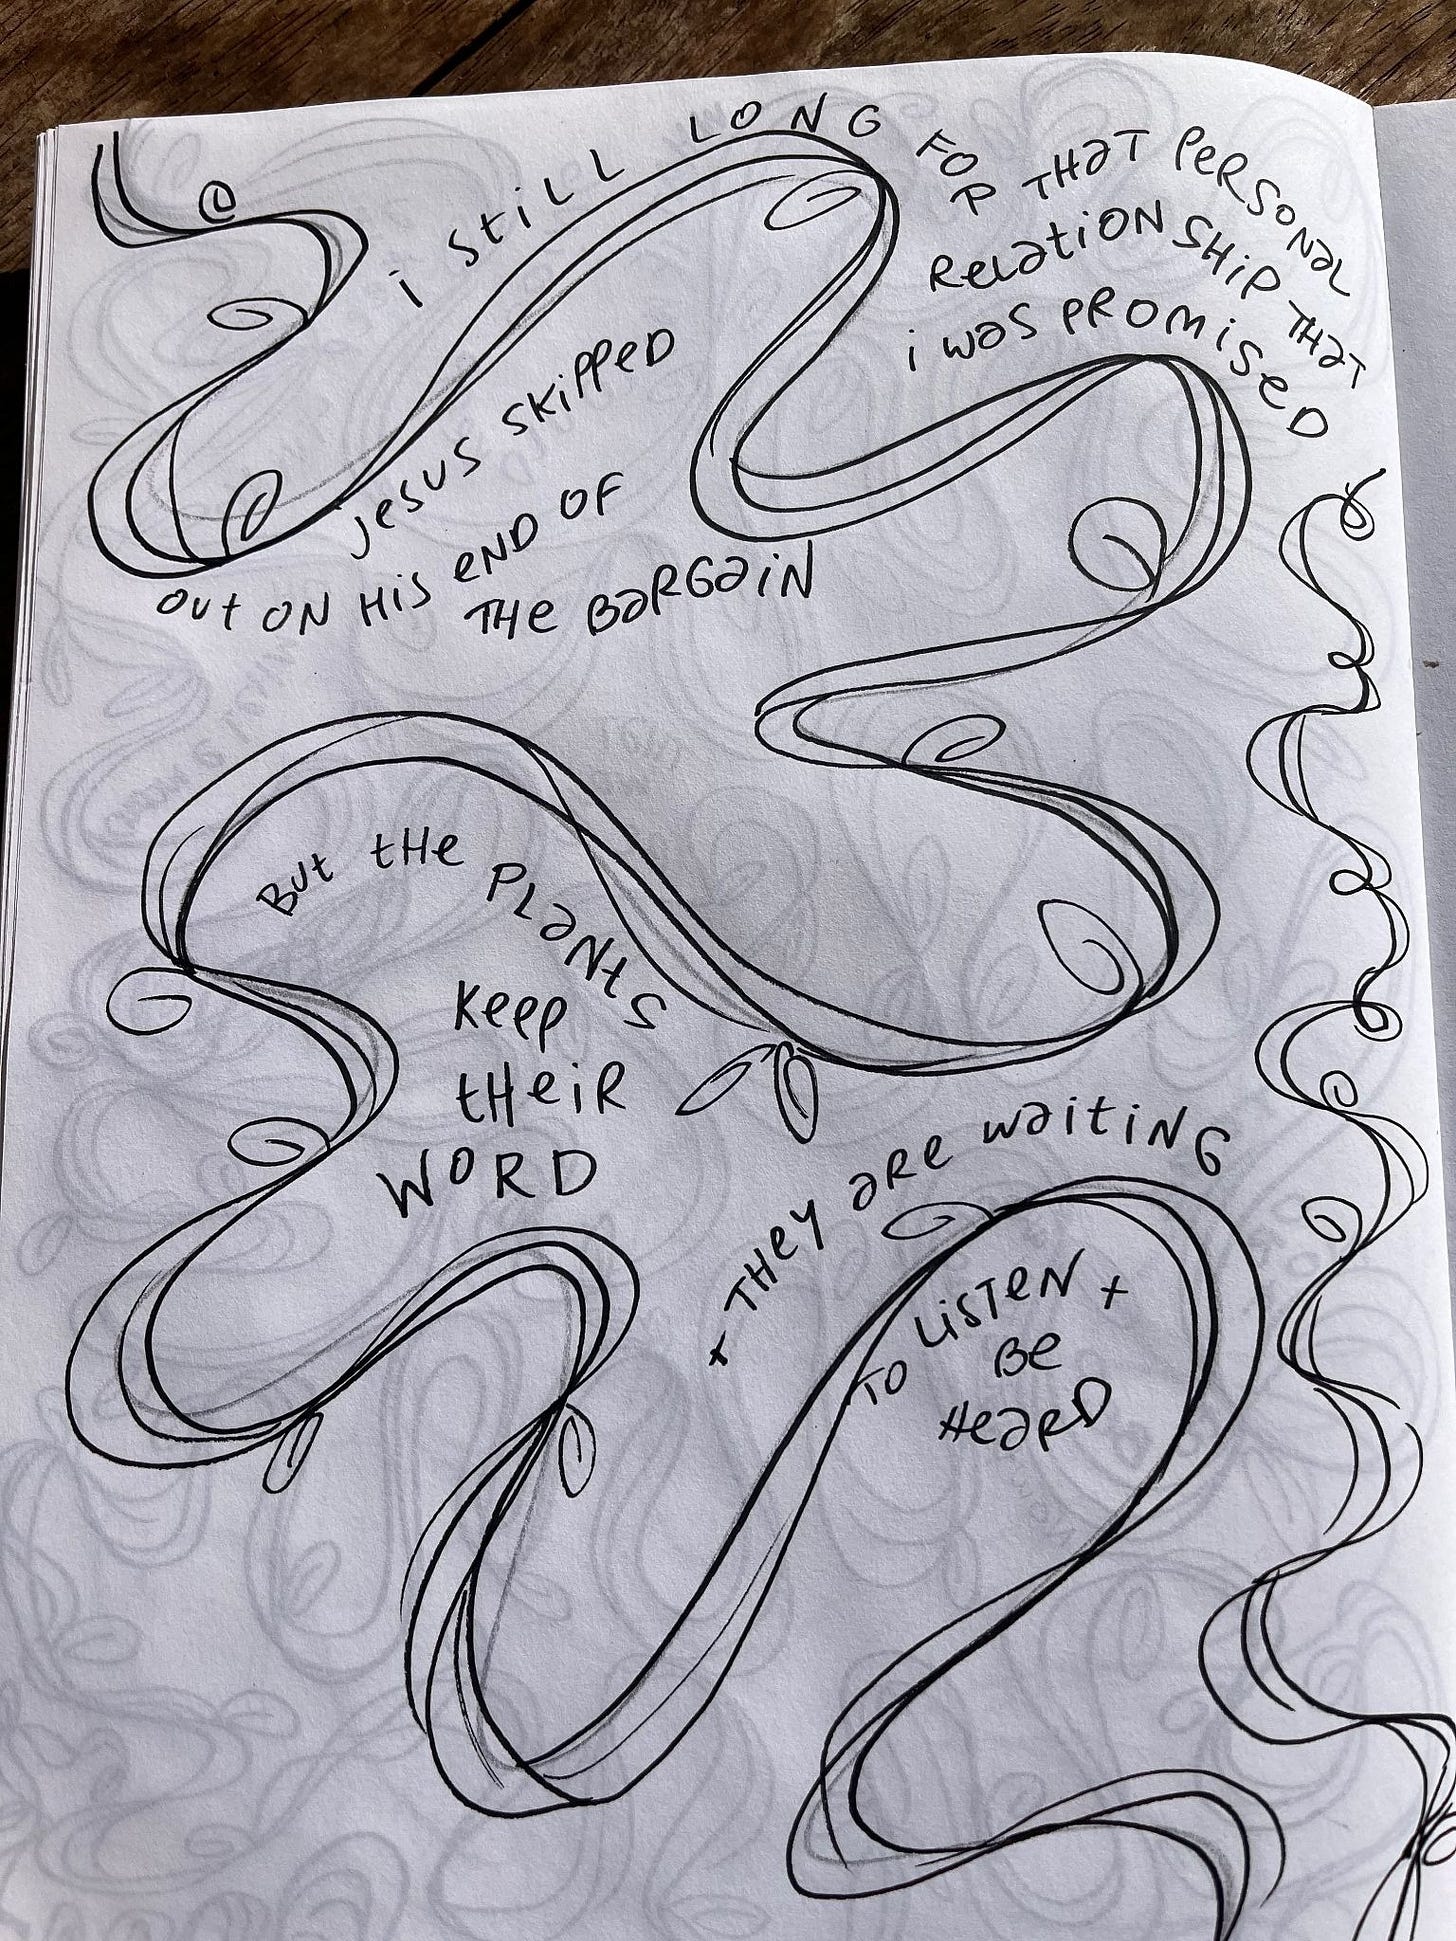 i still LONG FOR THAT PERSONAL
RELATIONSHIP THAT
i was PROMISED
Jesus skipped
out ON His END OF
THE BARGAIN
But the PLANts
keep
tHeiR
WORD
+ THEY ARE waitiNG
TO LISTEN +
Be
HEARD